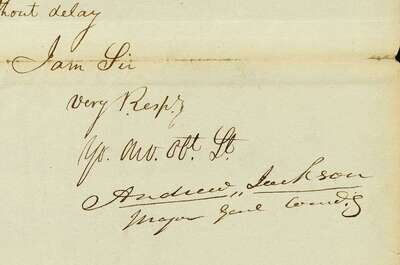 thout delay
I am Sir
very Respy
Yr. Mo. Obt. St.
Andrew Jackson
Major Genl Comdg